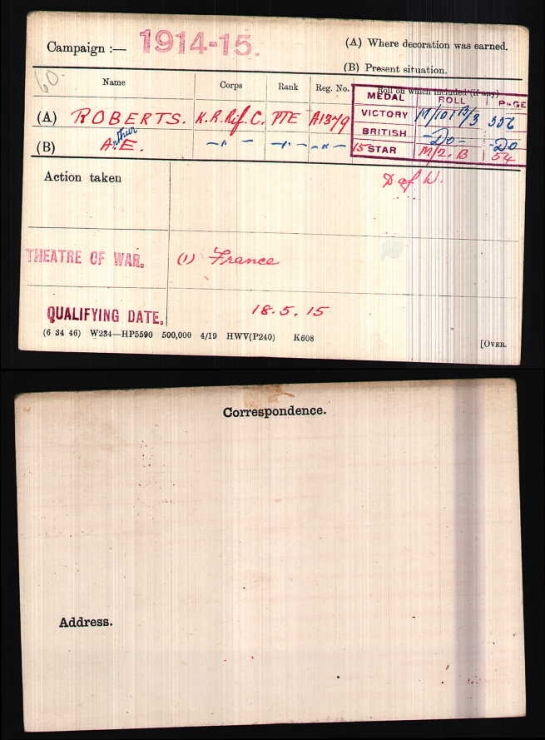 Campaign :— 1914-15.
(A) Where decoration was earned.
(B) Present situation.
60.
Name Corps Rank Reg. No. Roll on which included (if any)
MEDAL ROLL PAGE
(A) ROBERTS. K.R.Rif.C. PTE A1379
VICTORY 556
(B) Arthur E. —"— —"— —"—
BRITISH -Do- -Do
15 STAR M/2.B 54
Action taken
D of W.
THEATRE OF WAR. (1) France
QUALIFYING DATE. 18.5.15
(6 34 46) W234—HP5590 500,000 4/19 HWV(P240) K608
[OVER.
Correspondence.
Address.